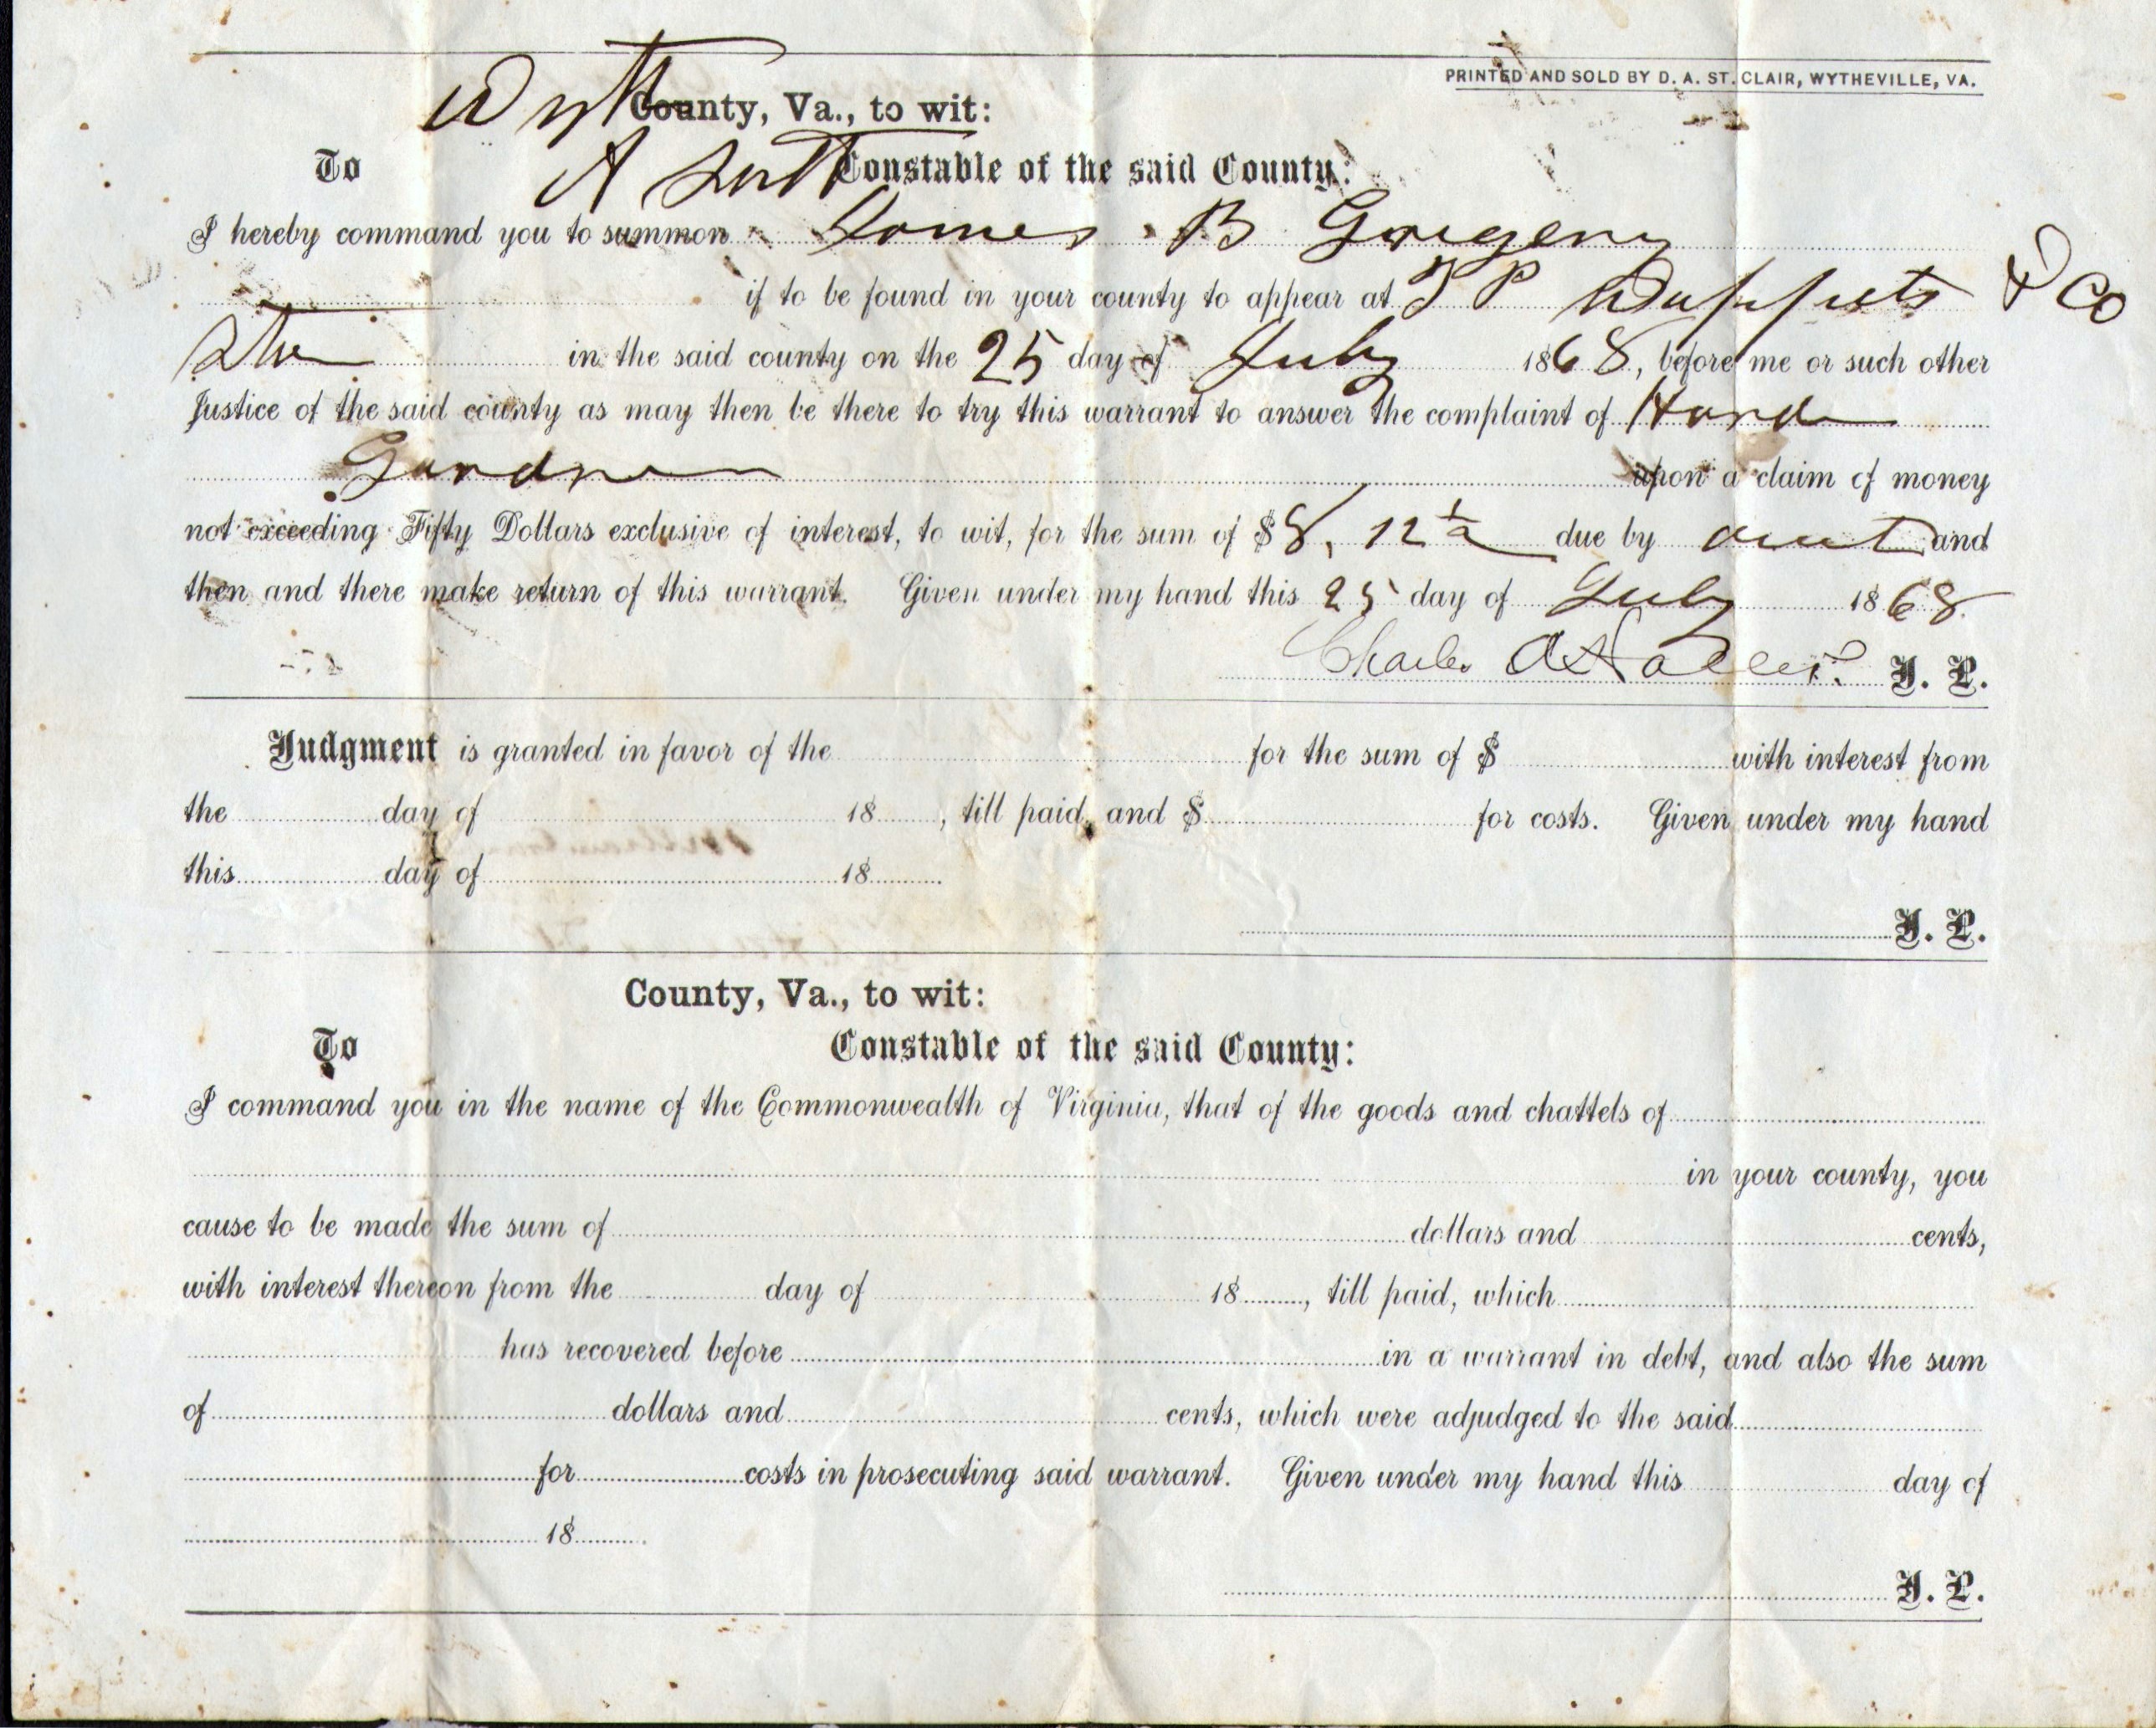 PRINTED AND SOLD BY D. A. ST. CLAIR, WYTHEVILLE, VA.
Wyth County, Va., to wit:
To A Constable of the said County:
I hereby command you to summon James B Gregory
if to be found in your county to appear at & Co
in the said county on the 25 day of July 1868, before me or such other
Justice of the said county as may then be there to try this warrant to answer the complaint of
upon a claim of money
not exceeding Fifty Dollars exclusive of interest, to wit, for the sum of $8, 12½ due by and
then and there make return of this warrant. Given under my hand this 25 day of July 1868
Charles J. P.
Judgment is granted in favor of the for the sum of $ with interest from
the day of 18 , till paid, and $ for costs. Given under my hand
this day of 18
J. P.
County, Va., to wit:
To Constable of the said County:
I command you in the name of the Commonwealth of Virginia, that of the goods and chattels of
in your county, you
cause to be made the sum of dollars and cents,
with interest thereon from the day of 18 , till paid, which
has recovered before in a warrant in debt, and also the sum
of dollars and cents, which were adjudged to the said
for costs in prosecuting said warrant. Given under my hand this day of
18 .
J. P.